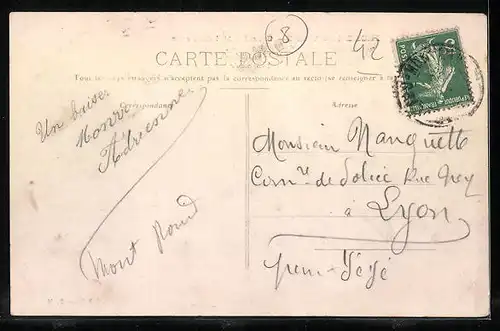 8
42
CARTE POSTALE
Tous les pays étrangers n'acceptent pas la correspondance au recto se renseigner à la
Correspondance
Adresse
Un baiser
Adrienne
Mont Rond
Monsieur Nanquette
Com re de Police Rue Ney
à Lyon
pour Gégé